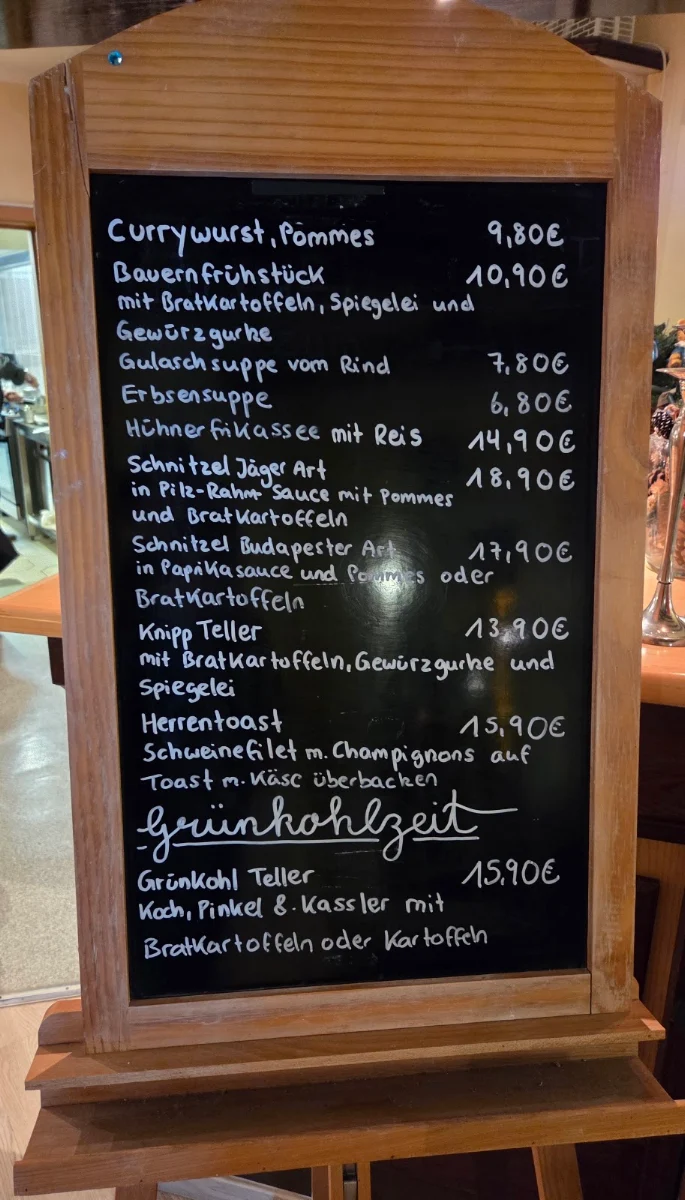 Currywurst, Pommes 9,80€
Bauernfrühstück 10,90€
mit Bratkartoffeln, Spiegelei und
Gewürzgurke
Gulaschsuppe vom Rind 7,80€
Erbsensuppe 6,80€
Hühnerfrikassee mit Reis 14,90€
Schnitzel Jäger Art 18,90€
in Pilz-Rahm Sauce mit Pommes
und Bratkartoffeln
Schnitzel Budapester Art 17,90€
in Paprikasauce und Pommes oder
Bratkartoffeln
Knipp Teller 13,90€
mit Bratkartoffeln, Gewürzgurke und
Spiegelei
Herrentoast 15,90€
Schweinefilet m. Champignons auf
Toast m. Käse überbacken
Grünkohlzeit
Grünkohl Teller 15,90€
Koch, Pinkel & Kassler mit
Bratkartoffeln oder Kartoffeln